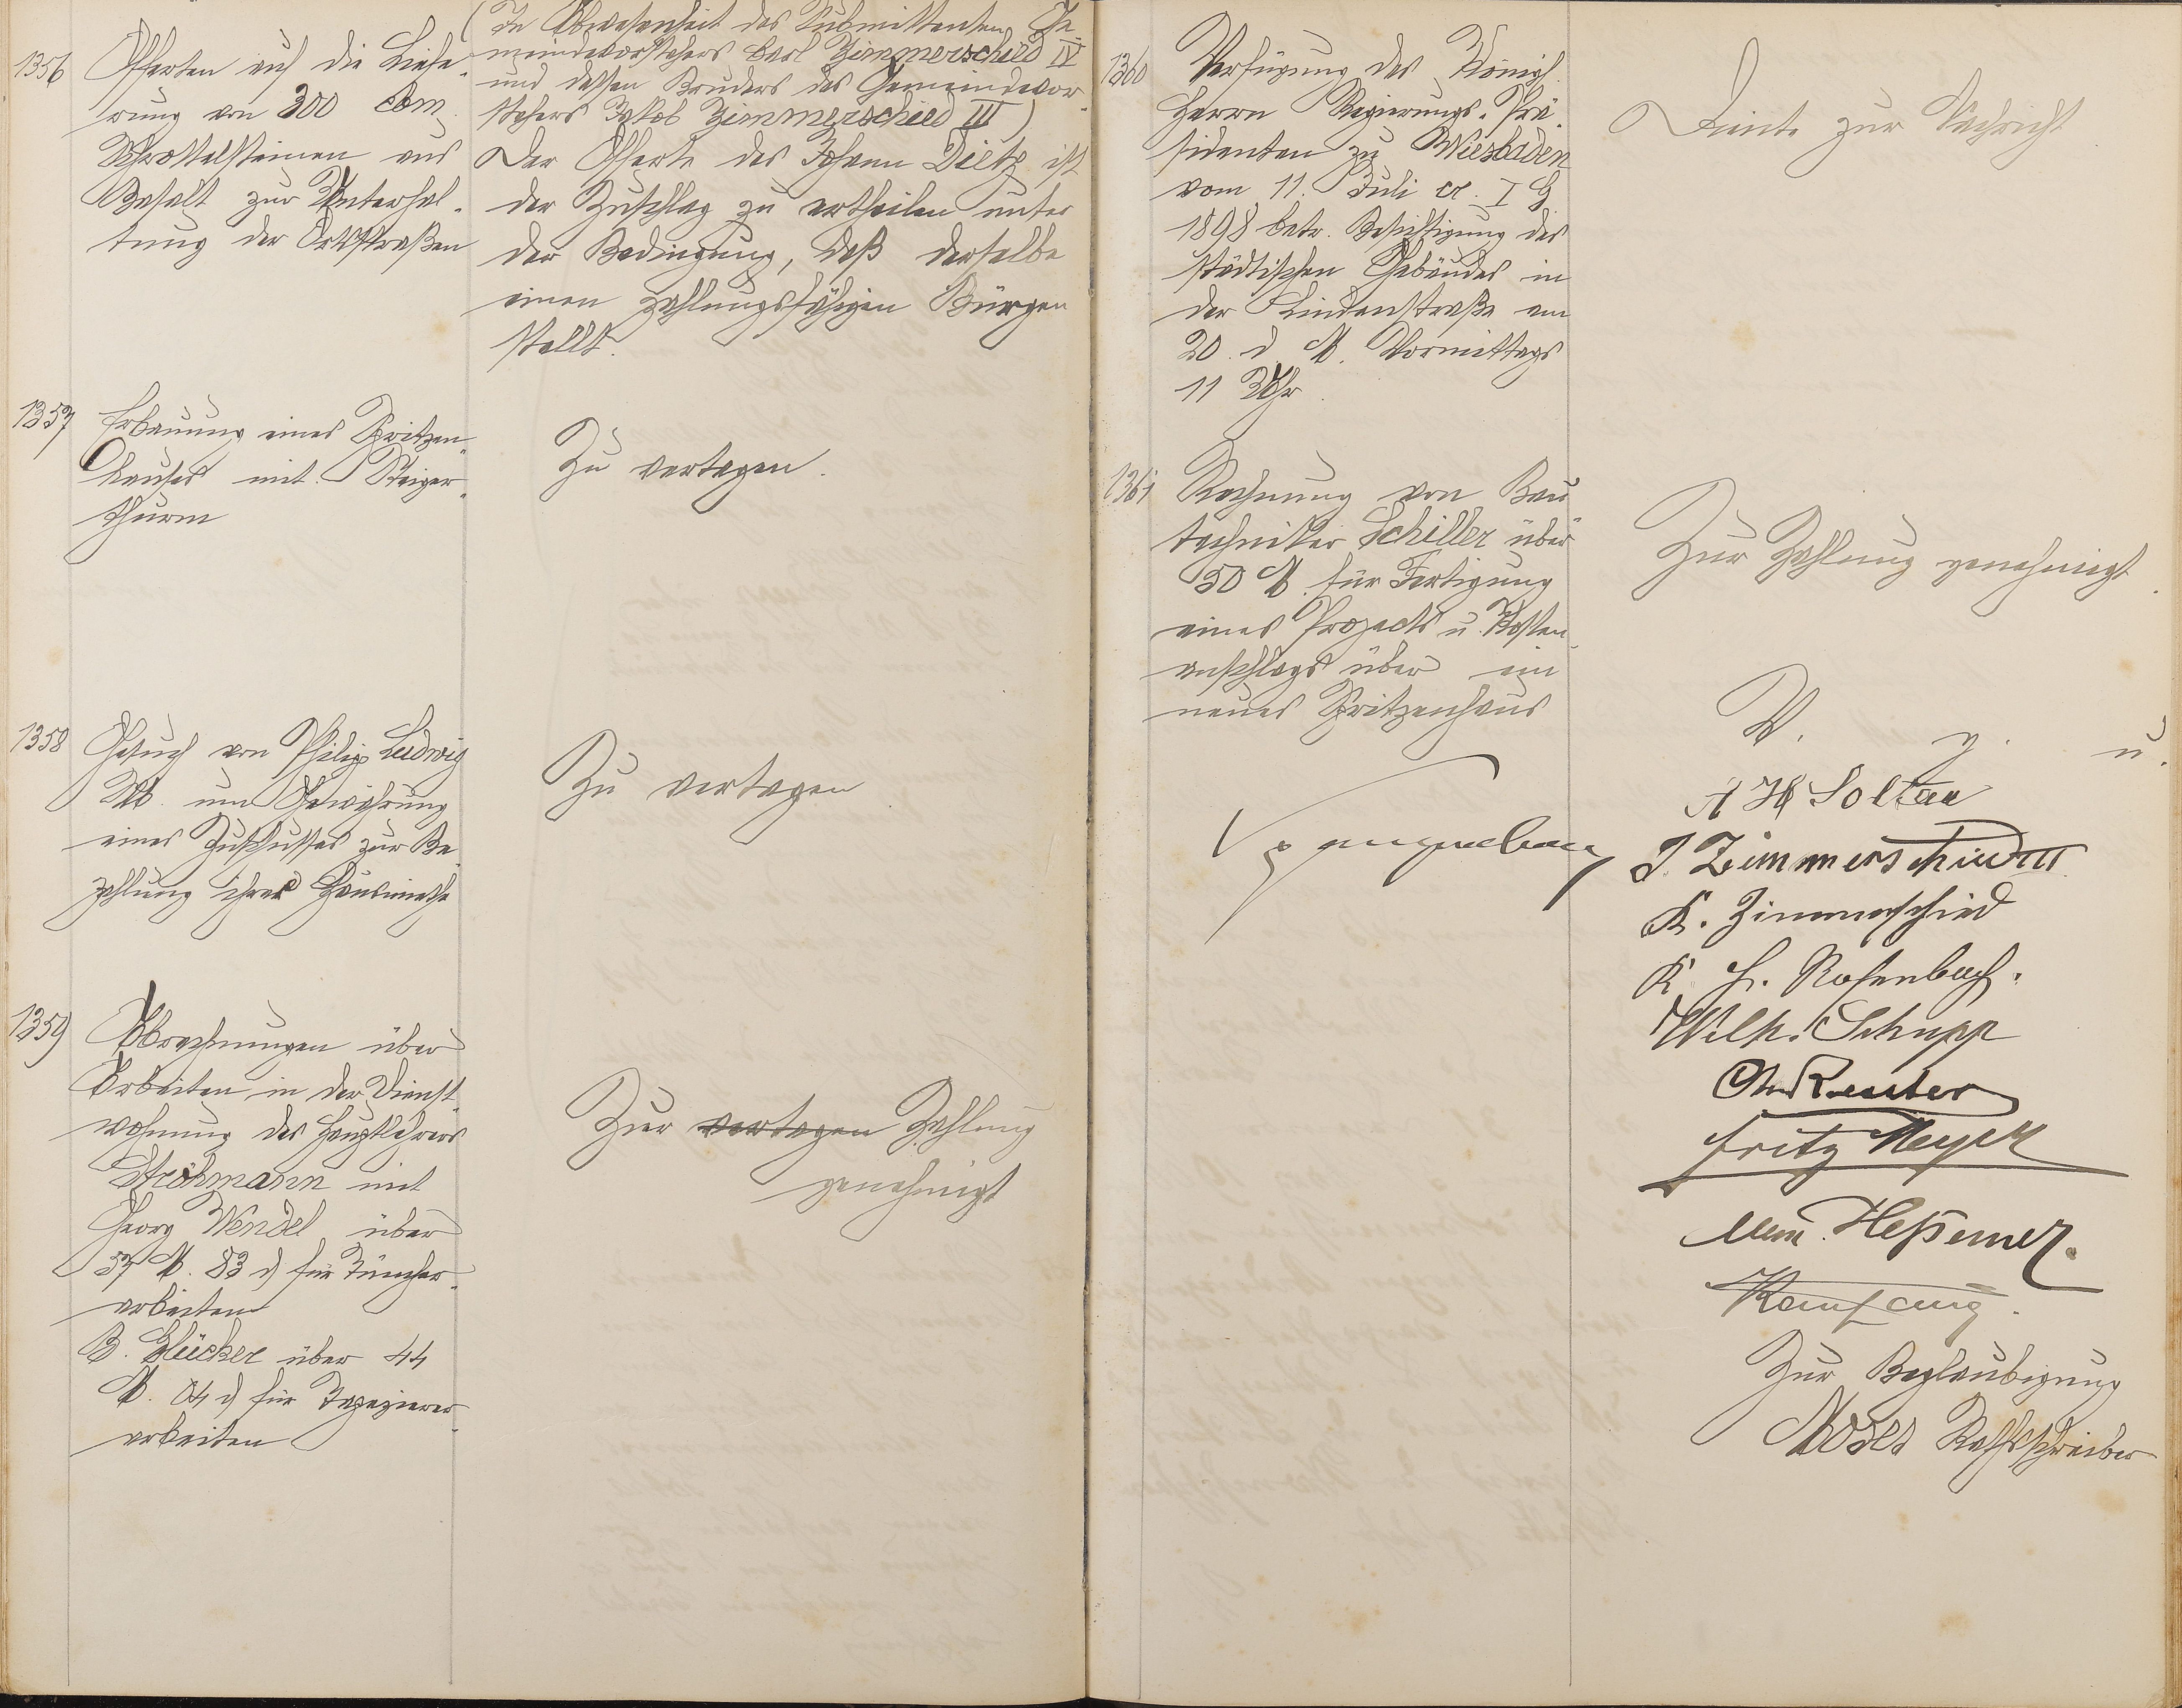 1356
Offerten auf die Liefe-
rung von 300 cbm
Schrottelsteinen aus
Basalt zur Unterhal-
tung der Ortsstraßen
(In Abwesenheit des Submittenten Ge-
meindevorstehers Carl Zimmerschied IV
und dessen Bruders des Gemeindevor-
stehers Jakob Zimmerschied III)
Der Offerte des Johann Dietz ist
der Zuschlag zu ertheilen unter
der Bedingung, daß derselbe
einen zahlungsfähigen Bürgen
stellt.
1357
Erbauung eines Spritzen-
hauses mit Steiger-
thurm
Zu vertagen.
1358
Gesuch von Philip Ludwig
um Gewährung
eines Zuschusses zur Be-
zahlung ihrer Hausmiethe
Zu vertagen
1359
Abrechnungen über
Arbeiten in der Dienst-
wohnung des Hauptlehrers
Ströhmann mit
Georg Wendel über
57 M. 83 d für Tüncher-
arbeiten
B. Glücker über 44
M. 04 d für Tapezierer-
arbeiten
Zur vertagen Zahlung
genehmigt
1360
Verfügung des Königl.
Herrn Regierungs-Prä-
sidenten zu Wiesbaden
vom 11. Juli cr. I G
1898 betr. Besichtigung des
städtischen Gebäudes in
der Lindenstraße am
20. d. M. Vormittags
11 Uhr.
Diente zur Nachricht
1361
Rechnung von Bau-
techniker Schiller über
50 M. für Fertigung
eines Projects u. Kosten-
anschlags über ein
neues Spritzenhaus
Zur Zahlung genehmigt.
V. g. u.
A H Soltau
J. Zimmerschied III
K. Zimmerschied
K. H. Rosenbach.
Wilh. Schupp
Chr Reuter
Fritz Meyer
Heßemer.
Zur Beglaubigung
Moses Rathsschreiber